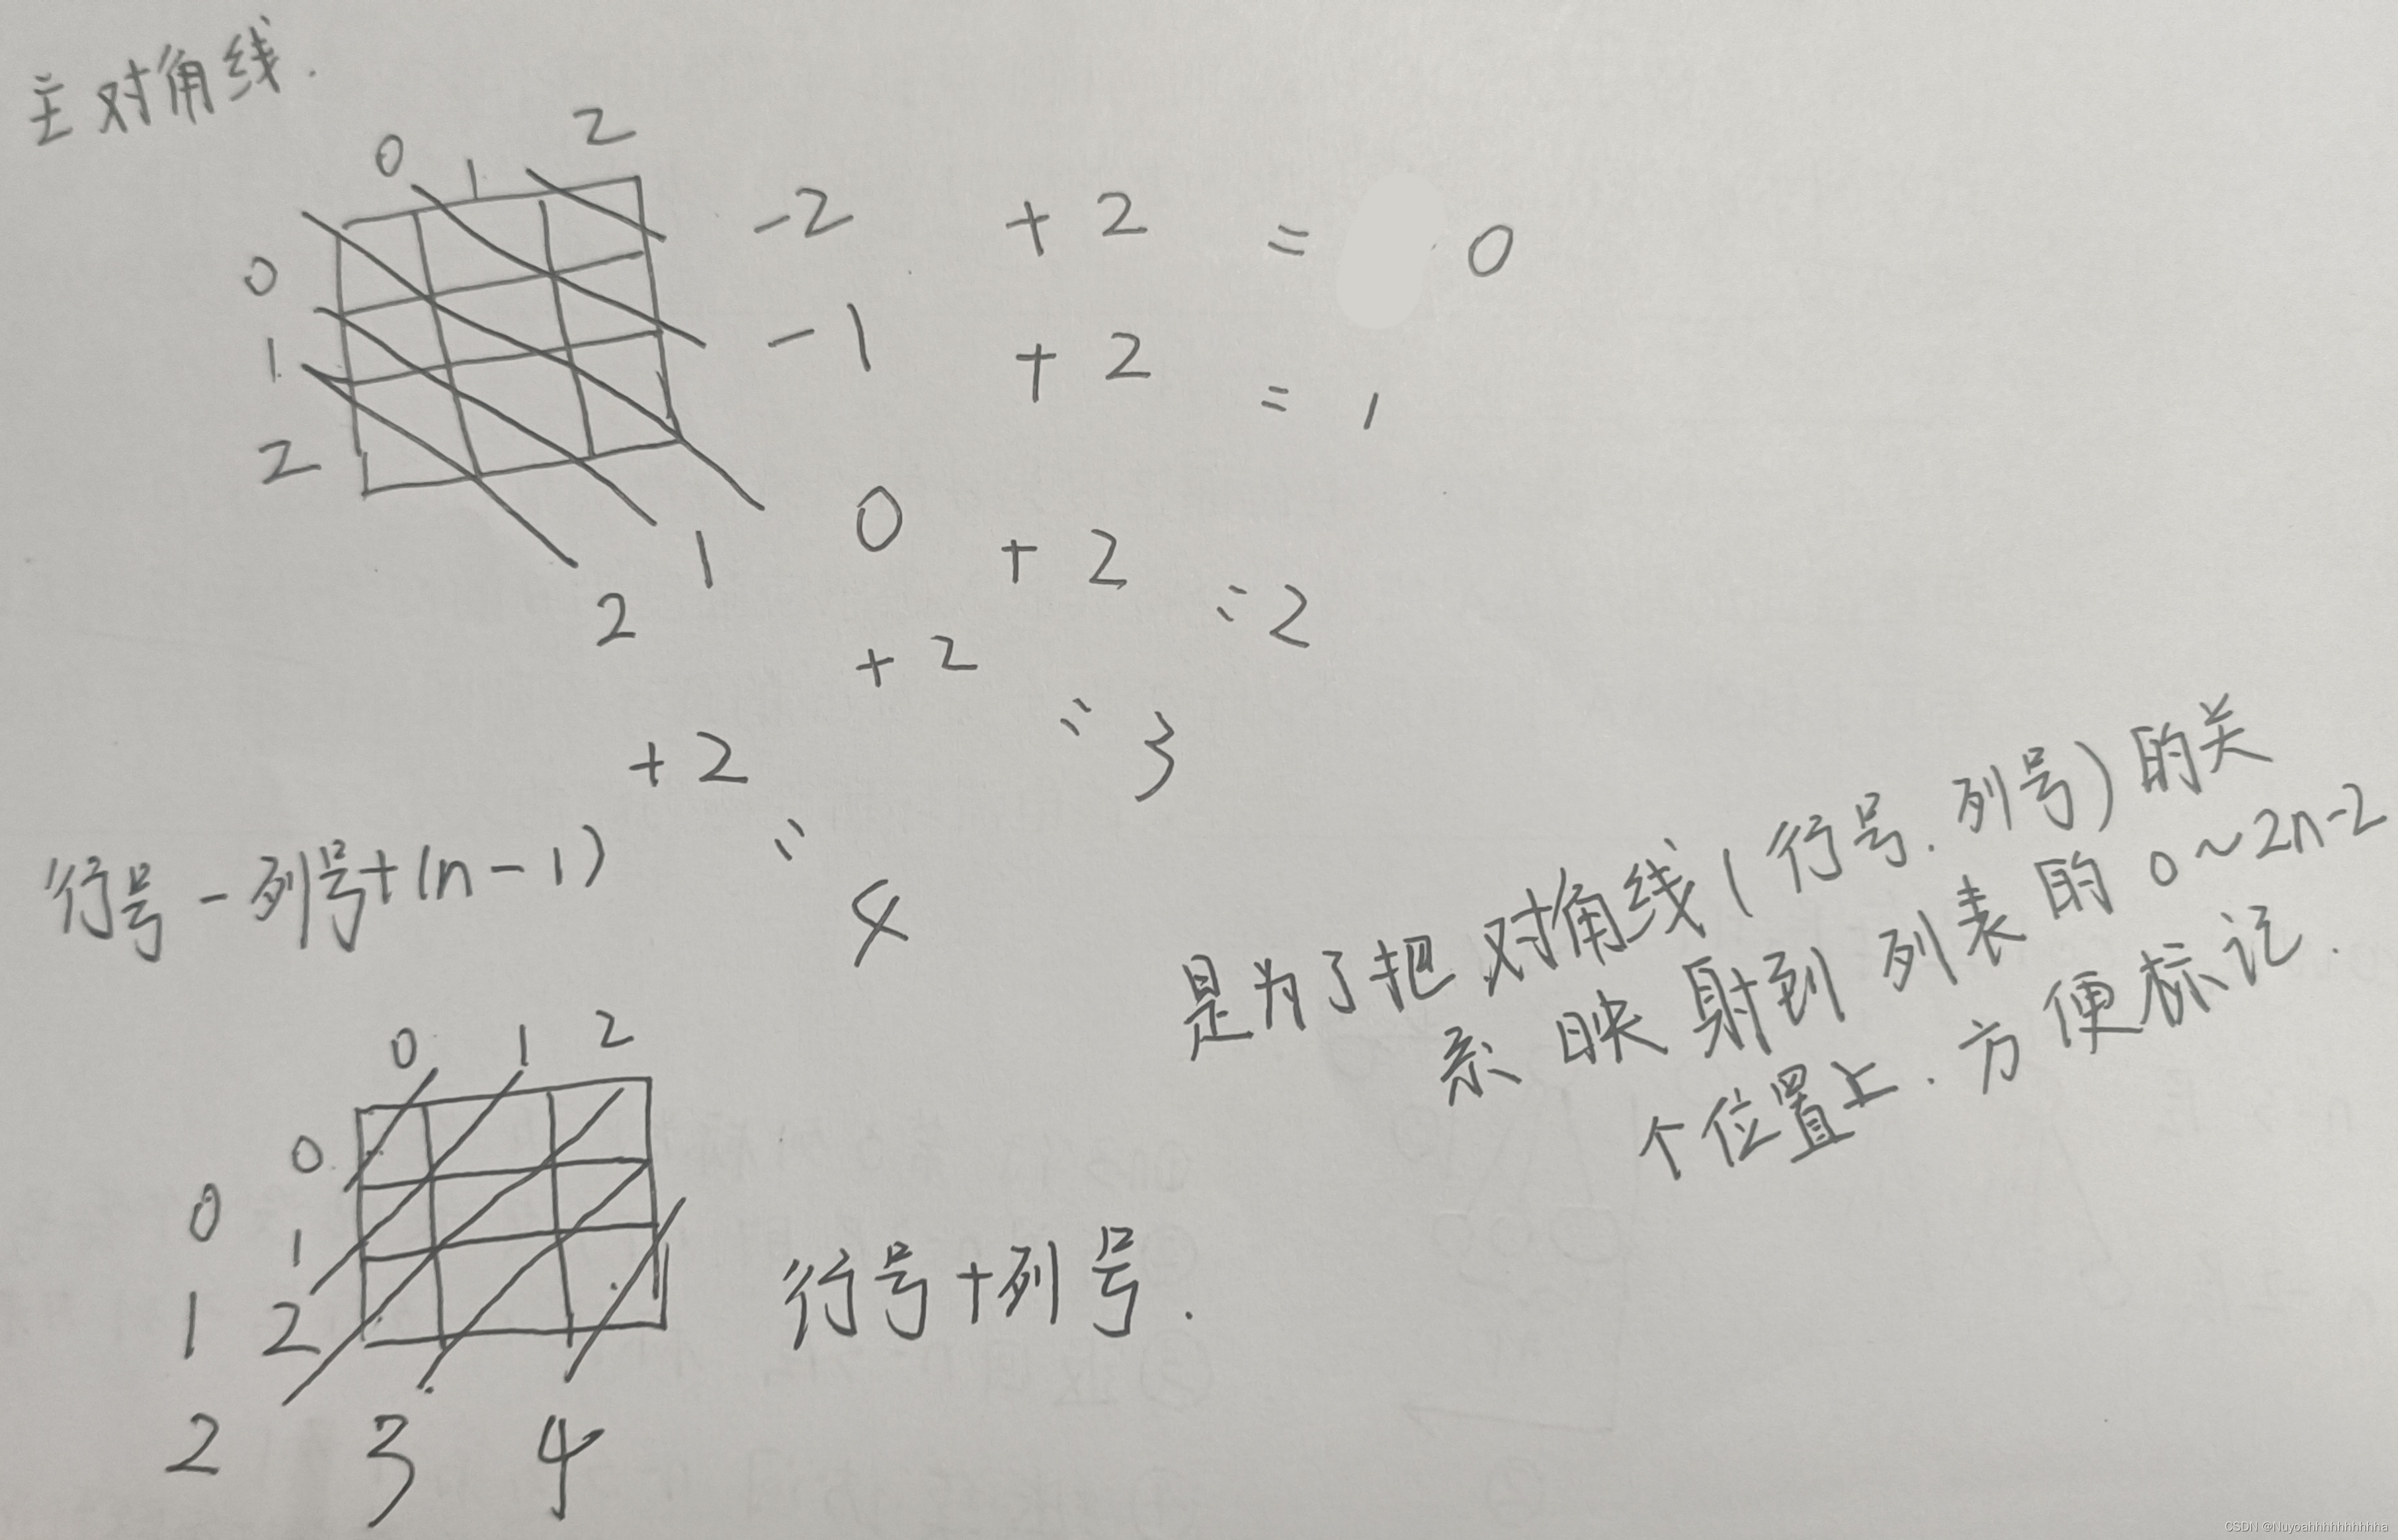 主对角线.
0 1 2
0
1
2
-2 +2 = 0
-1 +2 = 1
0 +2 =2
1 +2 =3
2 +2 =4
行号-列号+(n-1)
是为了把对角线(行号.列号)的关
系映射到列表的0~2n-2
个位置上.方便标记.
0 1 2
0
1
2
0
1
2 3 4
行号+列号.
CSDN @Nuyoahhhhhhhhhhha